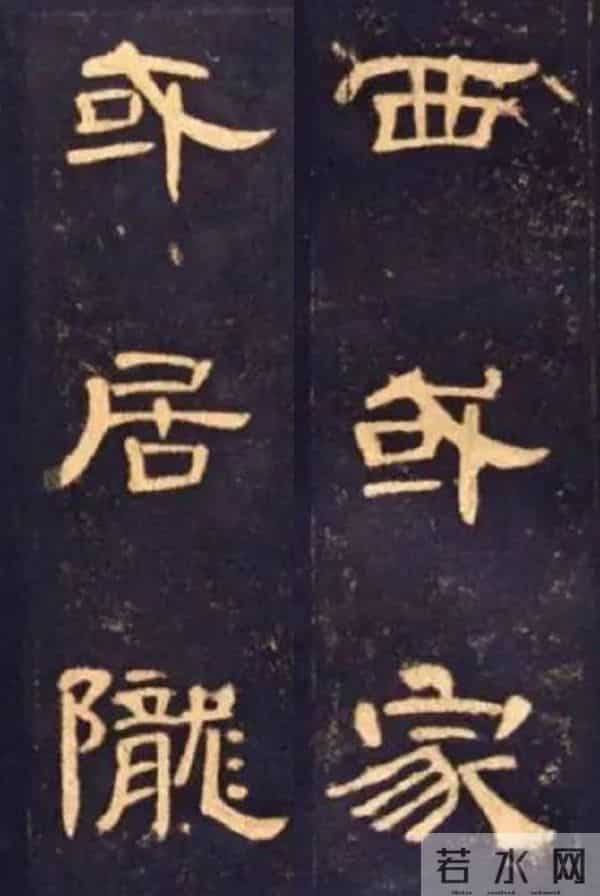 或居隴
西或家
若水网